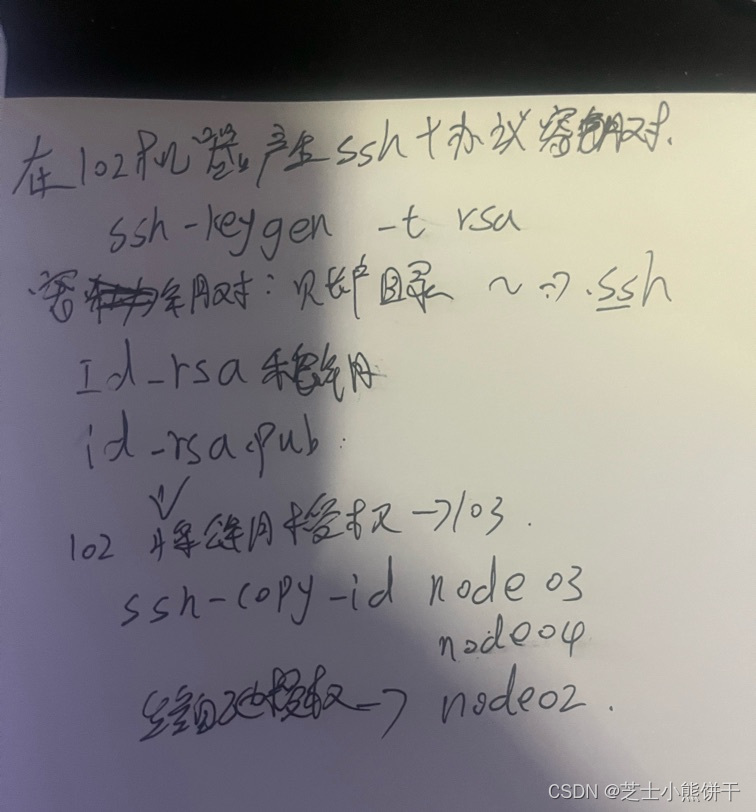 在102机器产生ssh十协议密钥对.
ssh-keygen -t rsa
密钥对: 目录 ~ .ssh
Id_rsa 私钥
id_rsa.pub.
102 将公钥授权→103.
ssh-copy-id node03
node04
给自己授权→ node02.
CSDN @芝士小熊饼干